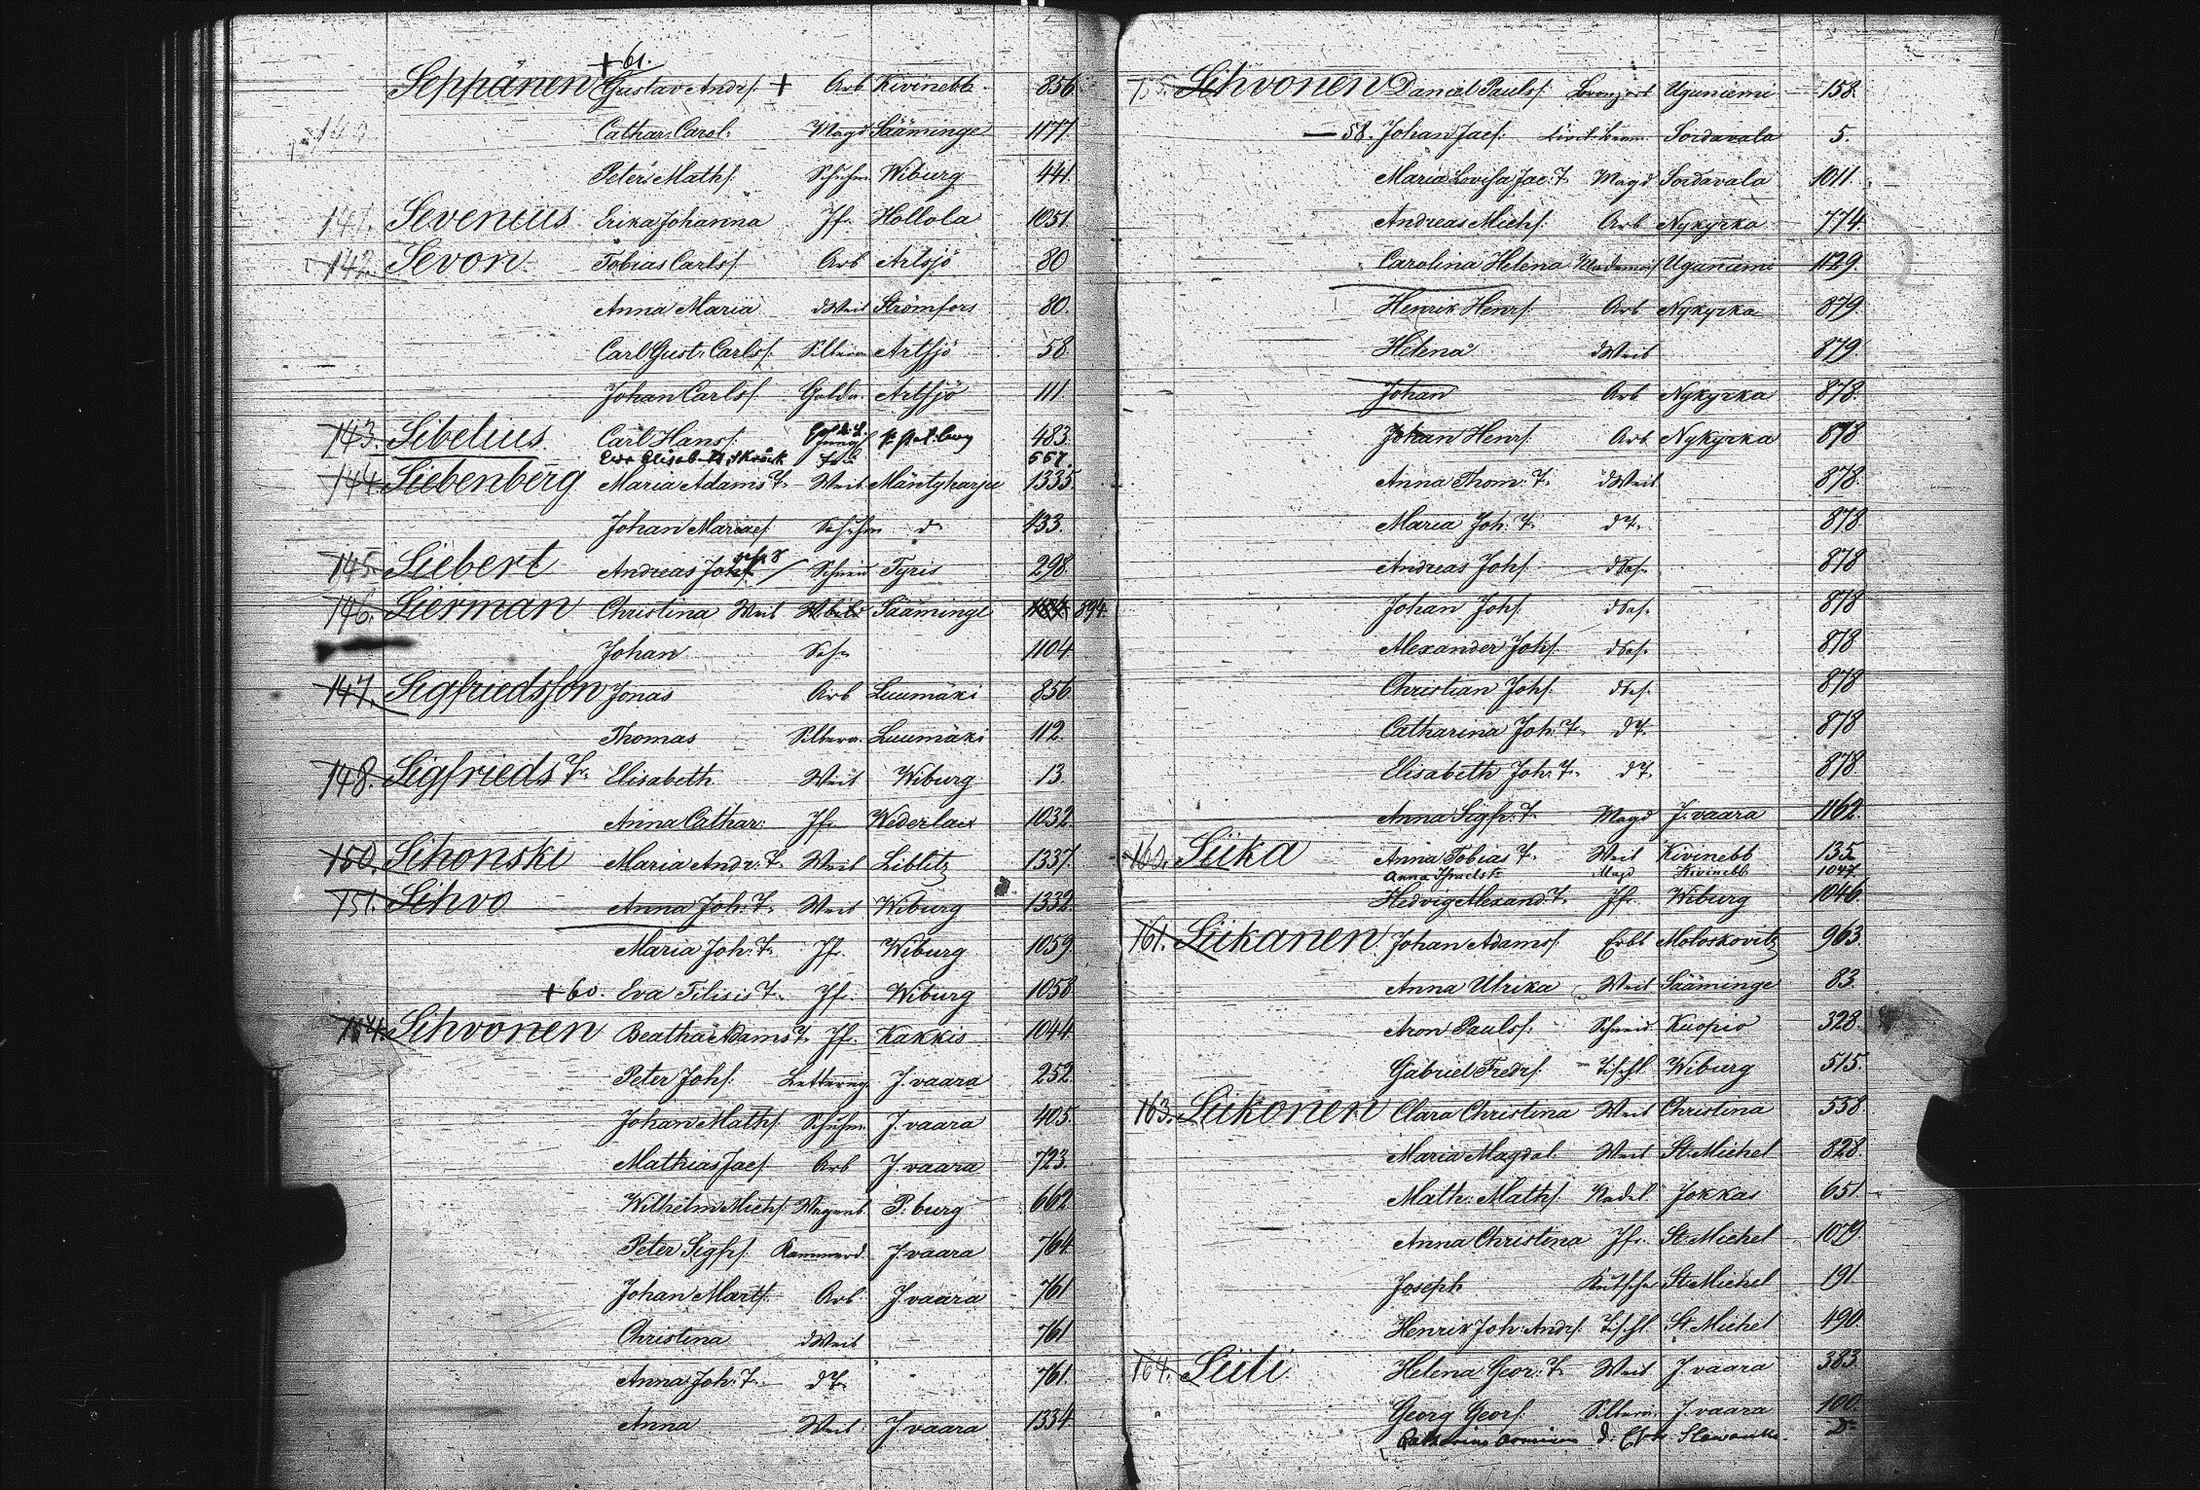 + 61.
Seppänen Gustav Andrs. + Arb Kivinebb 856
140 Cathar: Carol: Magd Sääminge 1177.
Peter Maths. Schuhm Wiburg 441.
141. Sevenius Erika Johanna Jfr. Hollola 1051
142. Sevon Tobias Carlss. Arb Artsjö 80
Anna Maria d Weib Strömfors 80.
Carl Gust: Carlss. Silberar Artsjö 58
Johan Carlss. Golda. Artsjö 111.
143. Sibelius Carl Hanss. 483.
Eva Elisabeth 557.
144. Siebenberg Maria Adams T. Weib Mäntyharju 1335
Johan Marias. Schuhm d 433.
145. Siebert Andreas Schneid Tyris 298.
146. Sierman Christina Weib Sääminge 894.
Johan Sohn 1104
147. Sigfriedsson Jonas Arb Luumäki 856.
Thomas Silberar. Luumäki 112.
148. Sigfrieds T. Elisabeth Weib Wiburg 13.
Anna Cathar: Jfr Wederlax 1032
150. Sihonski Maria Andr. T. Weib Liblitz 1337.
151. Sihvo Anna Joh. T. Weib Wiburg 1332.
Maria Joh. T. Jfr. Wiburg 1059.
+ 60. Eva Filisis T. Jfr. Wiburg 1058
154. Sihvonen Beatha Adams T. Jfr. Kakkis 1044
Peter Johs. J. vaara 252
Johan Maths. Schuhm J. vaara 405.
Mathias Jacs. Arb J. vaara 723.
Wilhelm Michs. Wagenb. P. burg 662
Peter Sigfrs. Kammerd. J. vaara 764
Johan Marts. Arb. J vaara 761
Christina d Weib 761
Anna Joh. T. d T. 761.
Anna Weib J. vaara 1334
155. Sihvonen Daniel Pauls. Uguniemi 158.
— 58. Johan Jacs. Sordavala 5.
Maria Lovisa Jac. T. Magd Sordavala 1011.
Andreas Michs. Arb Nykyrka 774.
Carolina Helena Mademois Uguniemi 1129.
Henrik Henrs. Arb Nykyrka 879.
Helena d Weib 879.
Johan Arb Nykyrka 878.
Johan Henrs. Arb. Nykyrka 878
Anna Thom. T. d Weib 878.
Maria Joh. T. d T. 878
Andreas Johs. d Sohn 878
Johan Johs. d Sohn 878
Alexander Johs. d Sohn 878
Christian Johs. d Sohn 878
Catharina Joh. T. d T. 878
Elisabeth Joh. T. d T. 878
Anna Sigfr. T. Magd J. vaara 1162.
160. Siika Anna Tobias T. Weib Kivinebb 135
Anna Israels tr Magd Kivinebb 1047.
Hedvig Alexand. T. Jfr. Wiburg 1046.
161. Siikanen Johan Adams. Erbb Moloskovitz 963.
Anna Ulrika Weib Sääminge 83.
Aron Pauls. Schneid. Kuopio 328.
Gabriel Fredrs. Tischl. Wiburg 515.
163. Siikonen Clara Christina Weib Christina 558.
Maria Magdal. Weib St. Michel 828
Math: Maths. Nadel Jokkas 651
Anna Christina Jfr. St. Michel 1079.
Joseph Kutscher St. Michel 191
Henrik Joh: Andrs. Tischl. St. Michel 490.
164. Siiti Helena Geor. T. Weib J. vaara 383.
Georg Geors. Silberar. J. vaara 100.
d.